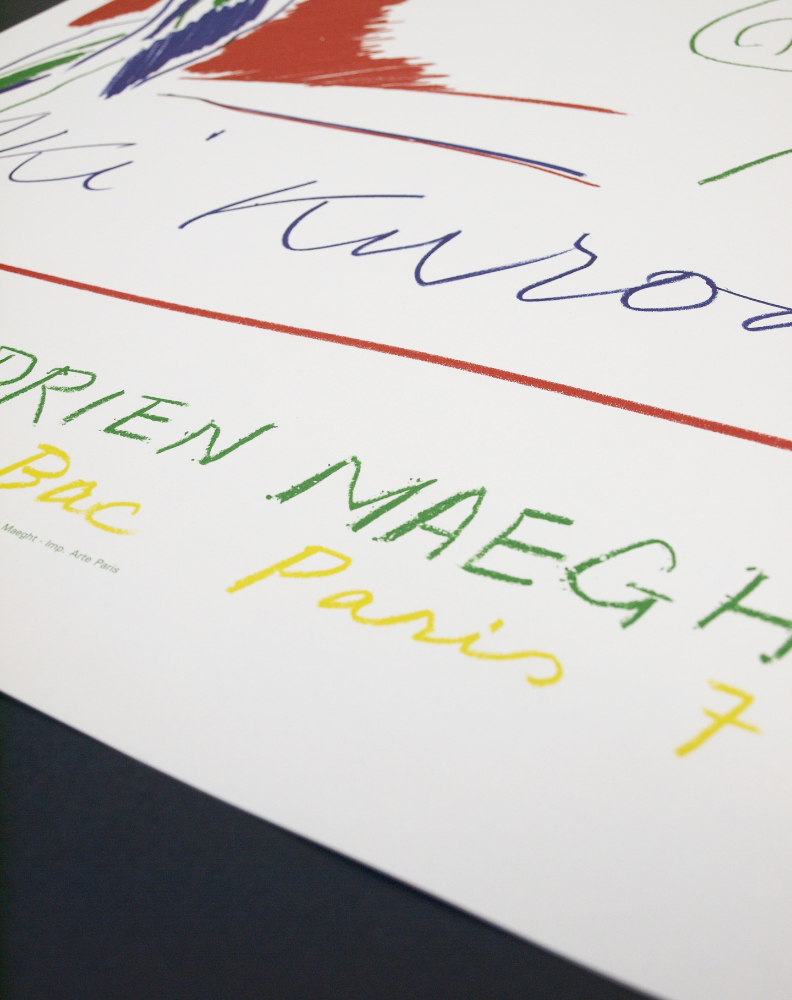 ki Kuroda
DRIEN MAEGH
Bac Paris 7
Maeght - Imp. Arte Paris